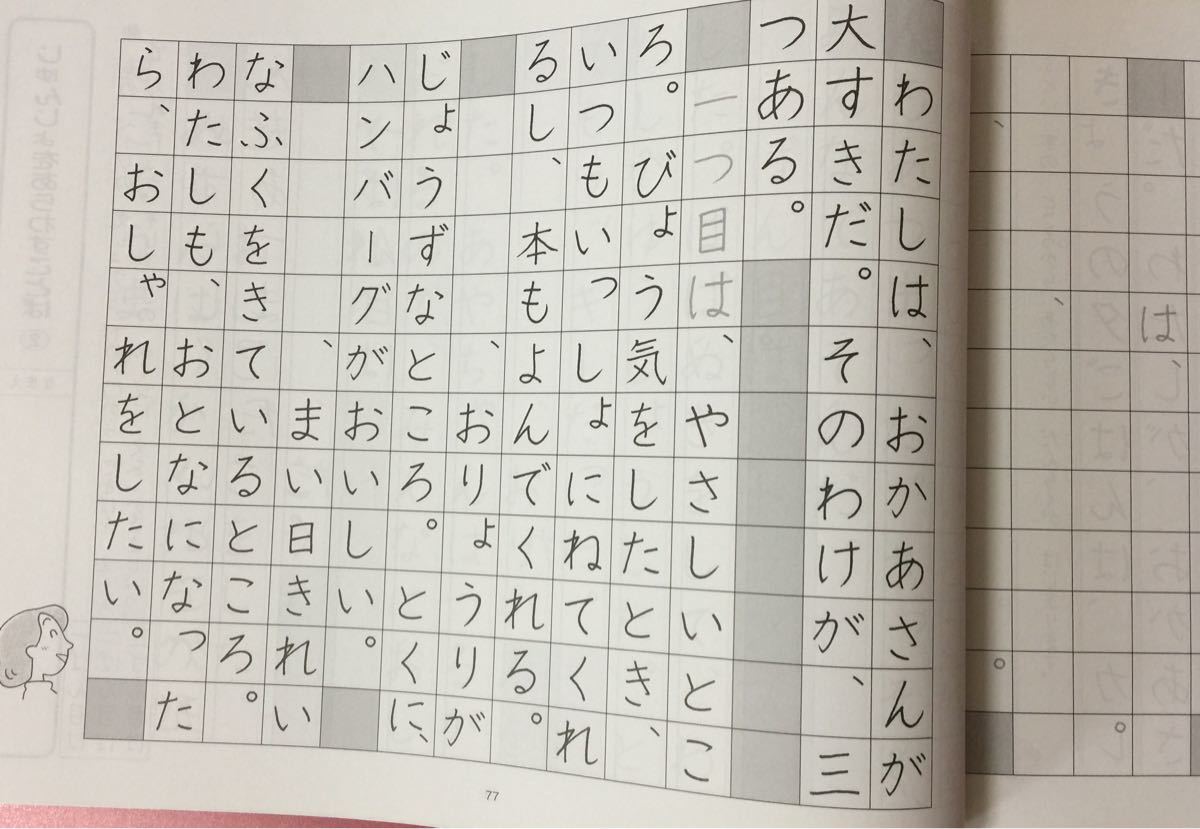 は
、
。
、
。
わたしは、おかあさんが
大すきだ。そのわけが、三
つある。
一つ目は、やさしいとこ
ろ。びょう気をしたとき、
いつもいっしょにねてくれ
るし、本もよんでくれる。
、おりょうりが
じょうずなところ。とくに、
ハンバーグがおいしい。
、まい日きれい
なふくをきているところ。
わたしも、おとなになった
ら、おしゃれをしたい。
77